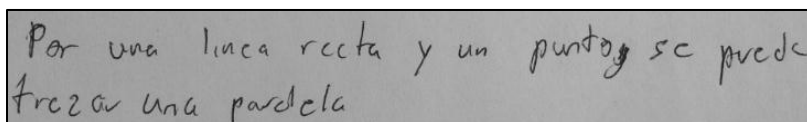 Por una linea recta y un punto, se puede
trezar una pardela